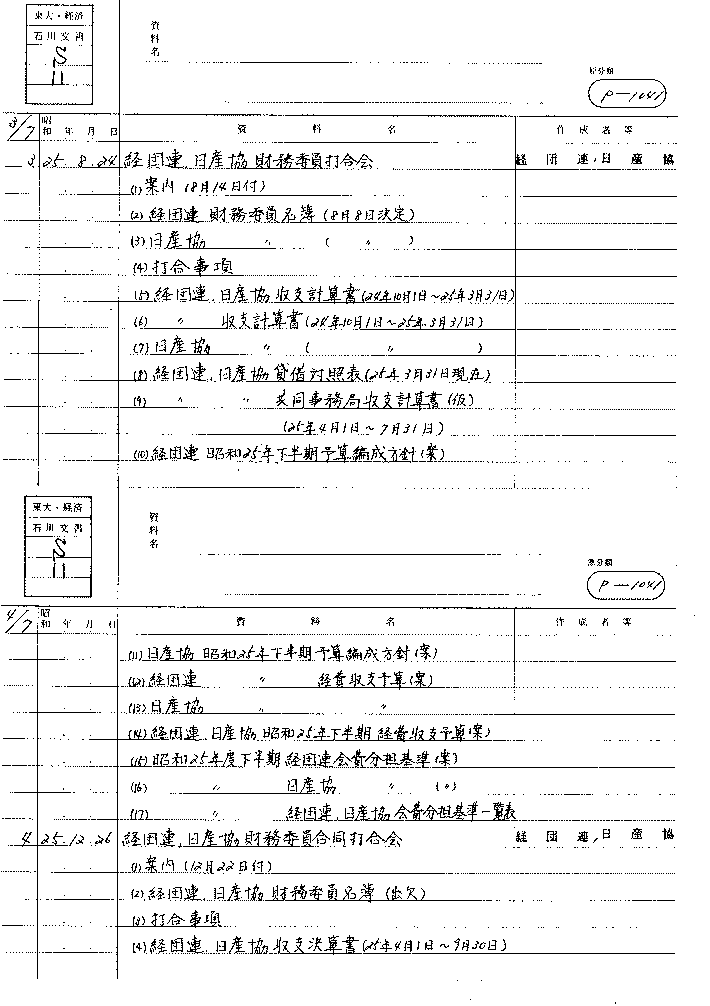 東大・経済
石川文書
資料名
原分類
P-1041
3/7 昭和 年 月 日 資 料 名 作 成 者 等
3 25.8.24 経団連、日産協財務委員打合会 経団連,日産協
(1) 案内 (8月14日付)
(2) 経団連 財務委員名簿 (8月8日決定)
(3) 日産協 〃 ( 〃 )
(4) 打合事項
(5) 経団連、日産協収支計算書(24年10月1日~25年3月31日)
(6) 〃 収支計算書(24年10月1日~25年3月31日)
(7) 日産協 〃 ( 〃 )
(8) 経団連、日産協貸借対照表(25年3月31日現在)
(9) 〃 〃 共同事務局収支計算書(仮)
(25年4月1日~7月31日)
(10) 経団連 昭和25年下半期予算編成方針(案)
東大・経済
石川文書
資料名
原分類
P-1041
4/7 昭和 年 月 日 資 料 名 作 成 者 等
(11) 日産協 昭和25年下半期予算編成方針(案)
(12) 経団連 〃 経費収支予算(案)
(13) 日産協 〃 〃
(14) 経団連、日産協昭和25年下半期経費収支予算(案)
(15) 昭和25年度下半期経団連会費分担基準(案)
(16) 〃 日産協 〃 (〃)
(17) 〃 経団連、日産協会費分担基準一覧表
4 25.12.26 経団連、日産協財務委員合同打合会 経団連,日産協
(1) 案内 (12月22日付)
(2) 経団連、日産協財務委員名簿 (出欠)
(3) 打合事項
(4) 経団連、日産協収支決算書(25年4月1日~9月30日)